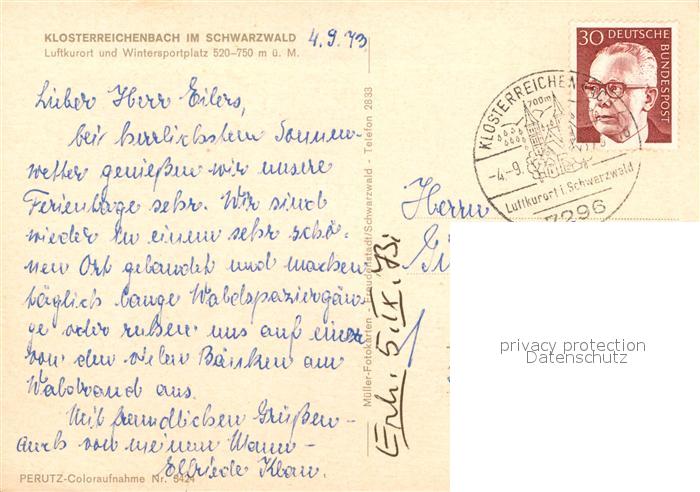 KLOSTERREICHENBACH IM SCHWARZWALD
Luftkurort und Wintersportplatz 520–750 m ü. M.
4.9.73
Lieber Herr Eilers,
bei herrlichstem Sonnen-
wetter genießen wir unsere
Ferientage sehr. Wir sind
wieder in einem sehr schö-
nen Ort gelandet und machen
täglich lange Waldspaziergän-
ge oder ruhen uns auf einer
von den vielen Bänken am
Waldrand aus.
Mit freundlichen Grüßen –
auch von meinem Mann –
Elfriede
PERUTZ-Coloraufnahme Nr. 8424
Müller-Fotokarten - Freudenstadt/Schwarzwald - Telefon 2833
Erh. 5.IX.73
30 DEUTSCHE
BUNDESPOST
KLOSTERREICHENBACH
700m
-4.-9.
Luftkurort i. Schwarzwald
7296
Herrn
privacy protection
Datenschutz